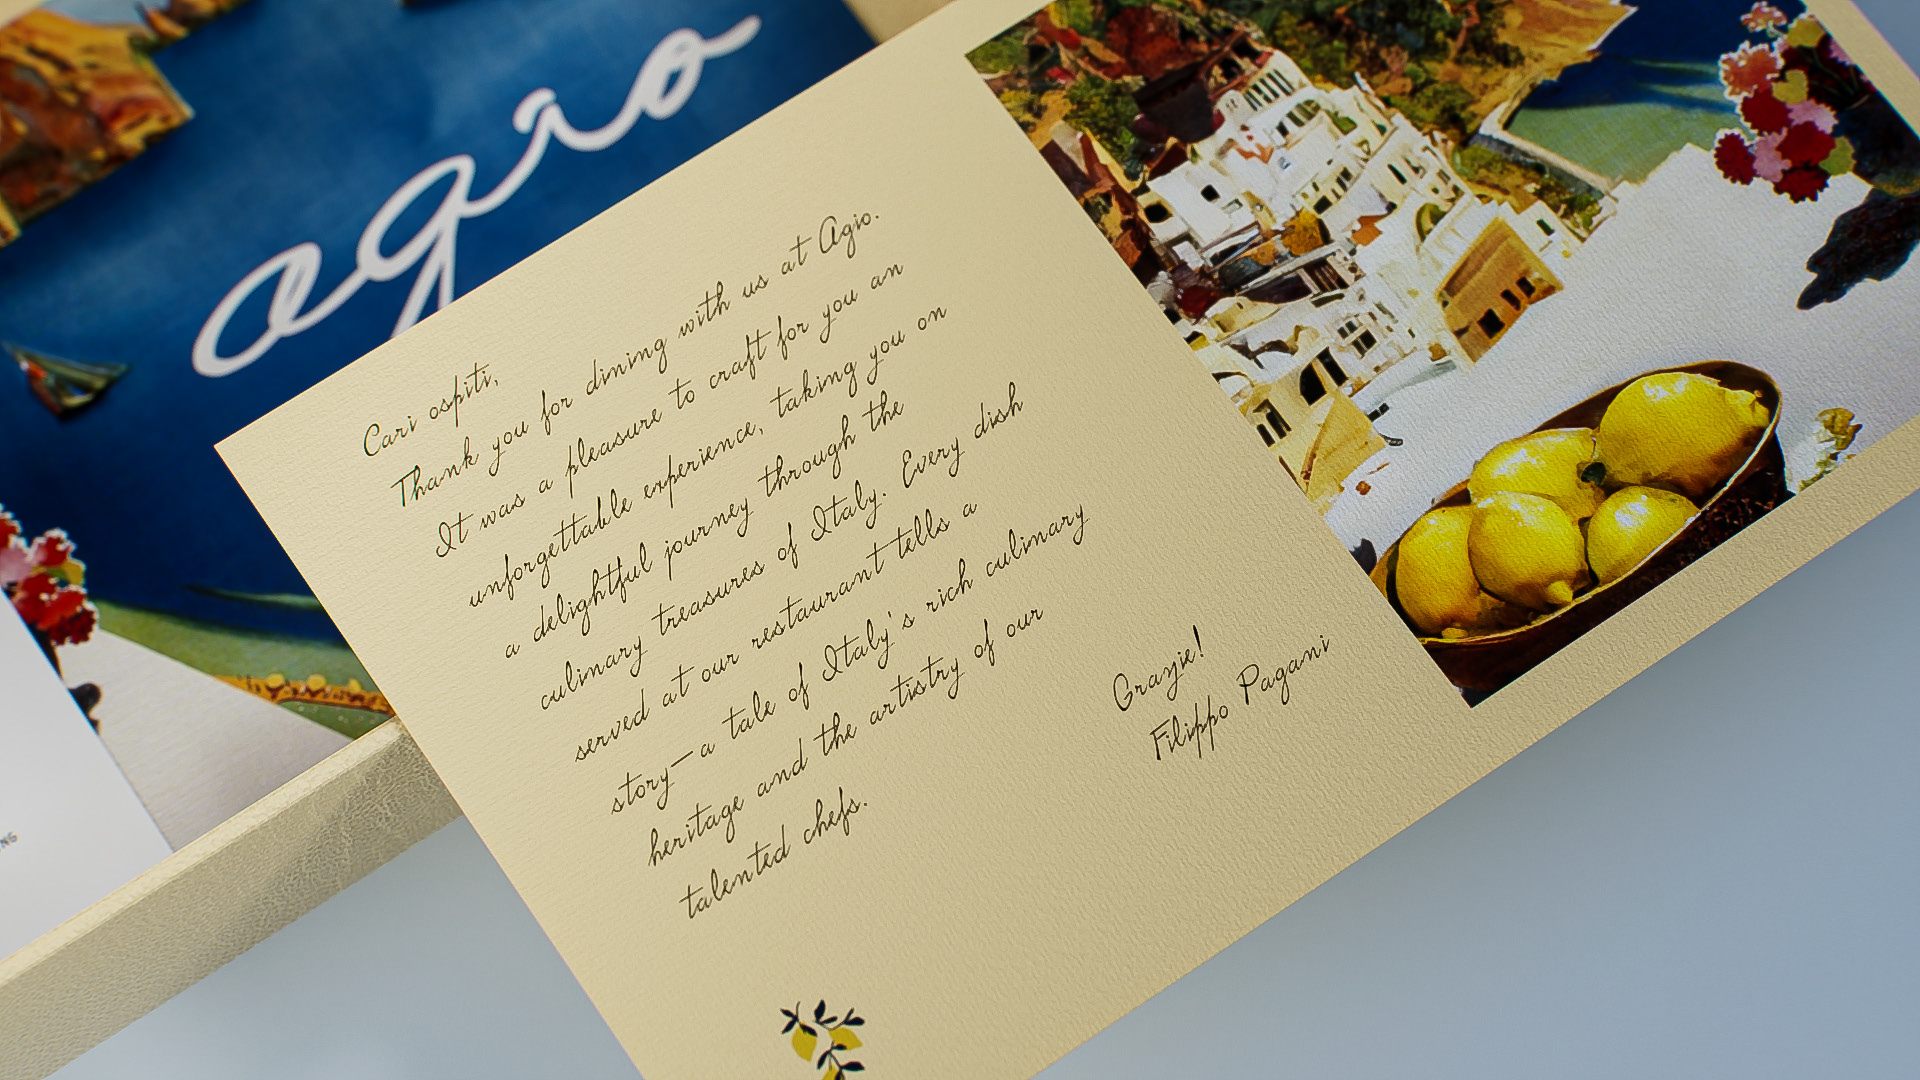 agio
Cari ospiti,
Thank you for dining with us at Agio.
It was a pleasure to craft for you an
unforgettable experience, taking you on
a delightful journey through the
culinary treasures of Italy. Every dish
served at our restaurant tells a
story—a tale of Italy's rich culinary
heritage and the artistry of our
talented chefs.
Grazie!
Filippo Pagani